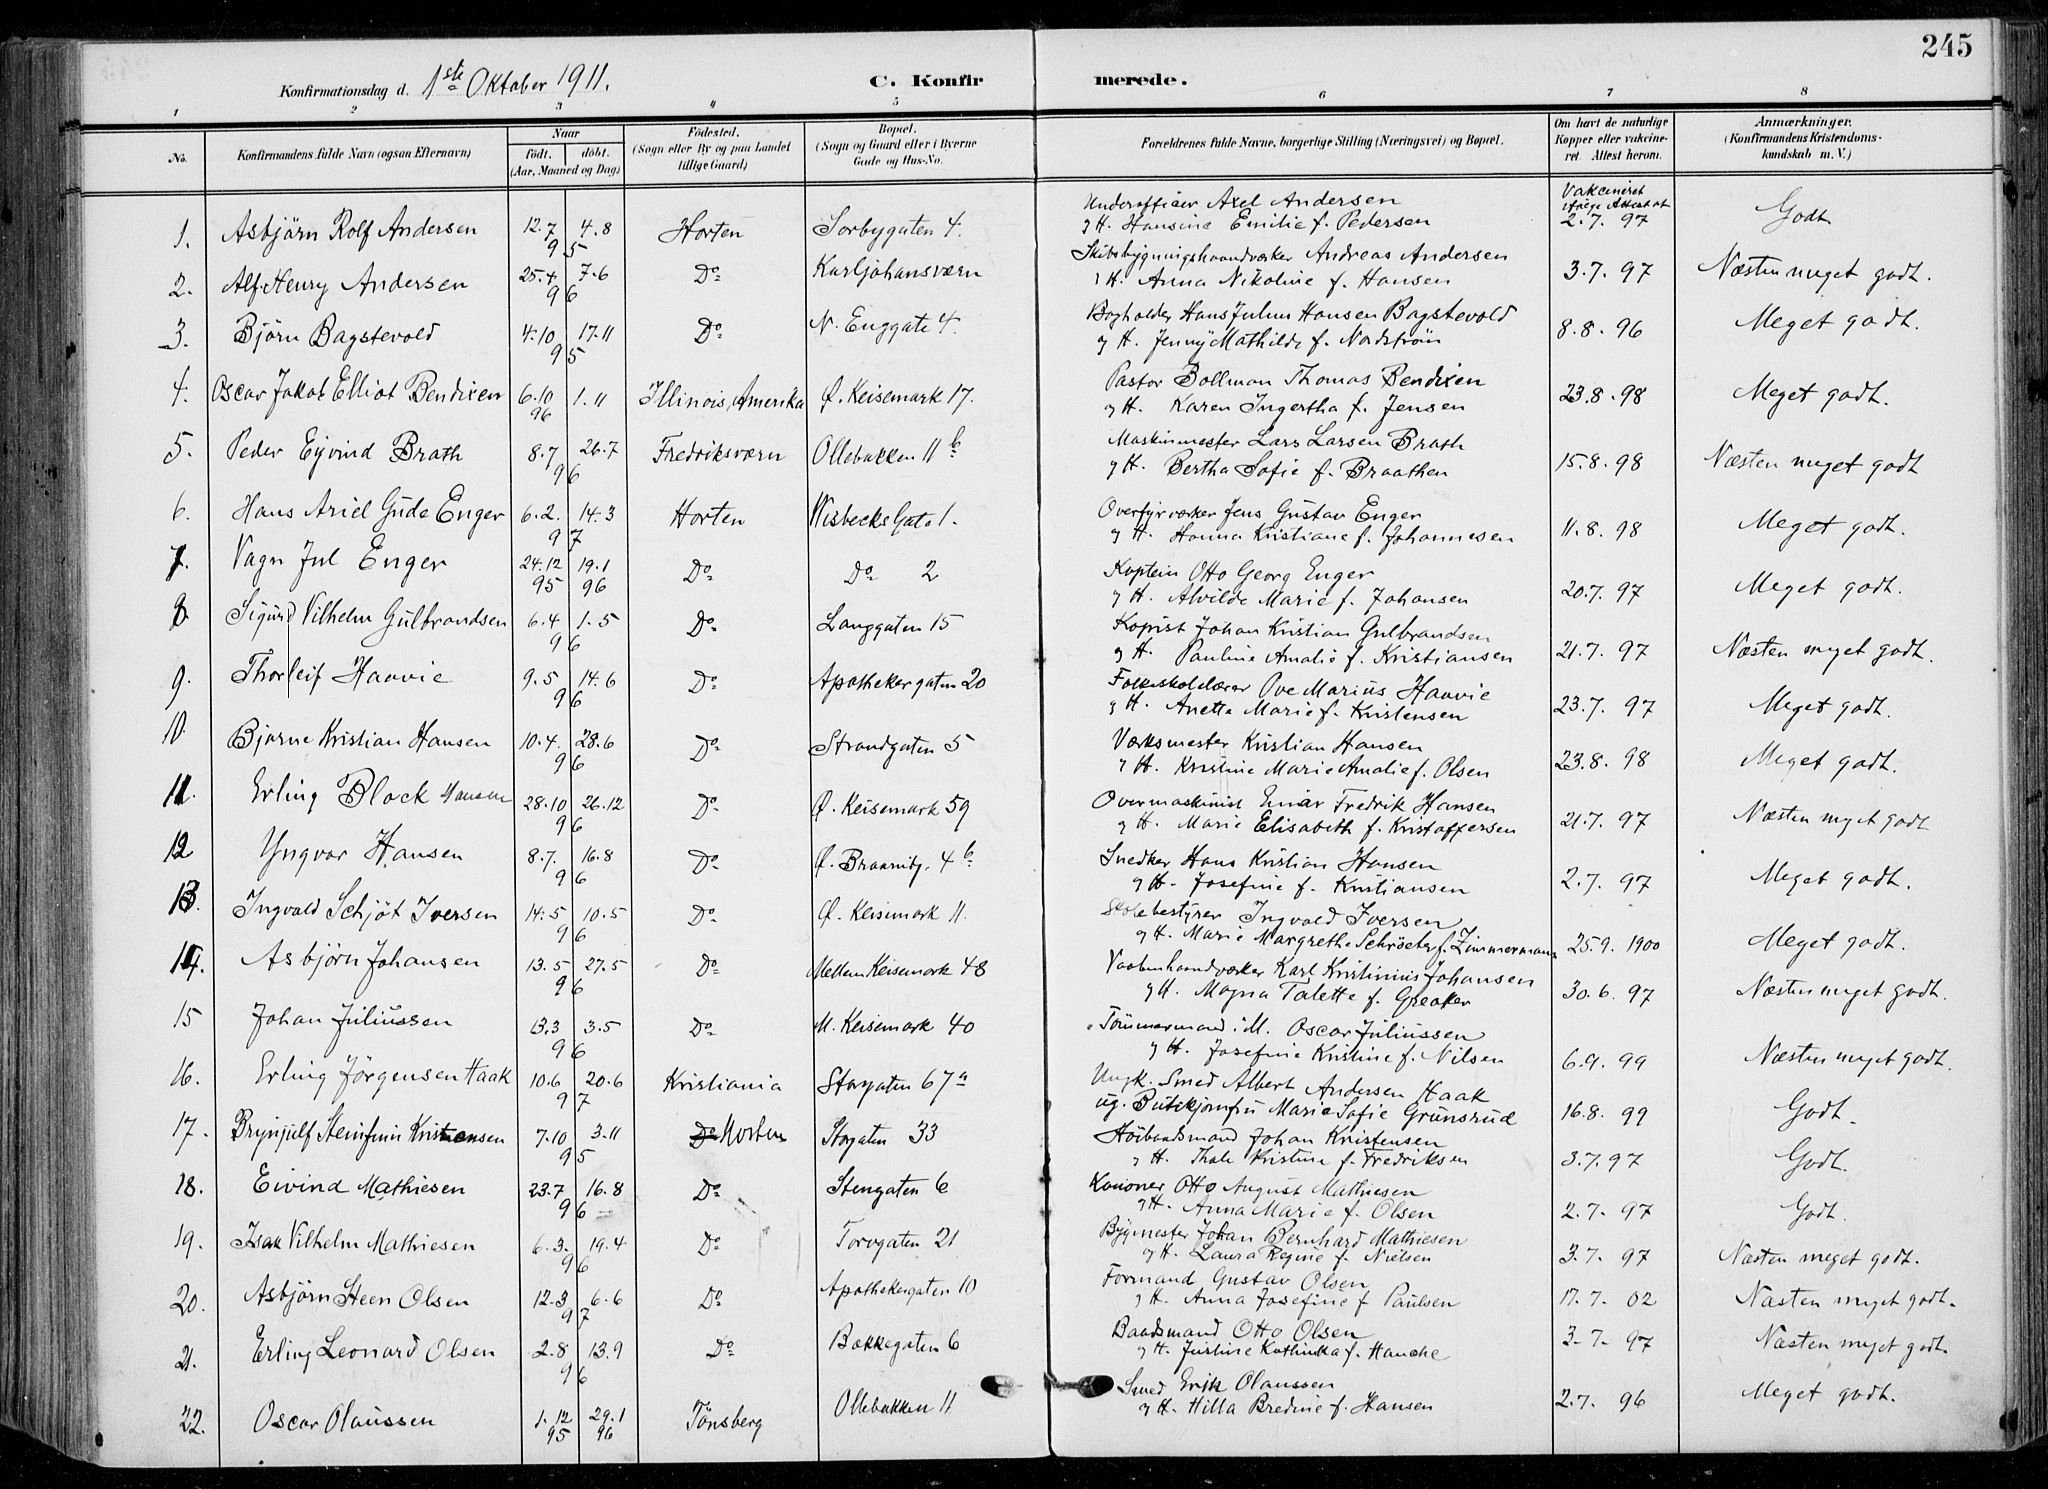 245
Konfirmationsdag d. 1ste Oktober 1911. C. Konfirmerede.
1 2 3 4 5 6 7 8
No. Konfirmandens fulde Navn (ogsaa Efternavn) Naar født. døbt. (Aar, Maaned og Dag) Fødested. (Sogn eller By og paa Landet tillige Gaard) Bopæl. (Sogn og Gaard eller i Byerne Gade og Hus-No. Forældrenes fulde Navne, borgerlige Stilling (Næringsvei) og Bopæl. Om havt de naturlige Kopper eller vakcineret. Attest herom. Anmærkninger. (Konfirmandens Kristendomskundskab m. V.)
1. Asbjörn Rolf Andersen 12.7 4.8 95 Horten Sorbygaten 4. Underofficer Axel Andersen
og H. Hansine Emilie f. Pedersen Vakcineret ifølge Attest at 2.7. 97 Godt
2. Alf Henry Andersen 25.4 7.6 96 Do Karljohansværn Skibsbygningshaandværker Andreas Andersen
og H. Anna Nikoline f. Hansen 3.7. 97 Næsten meget godt.
3. Björn Bagstevold 4.10 17.11 95 Do N. Enggate 4. Bogholder Hans Julius Hansen Bagstevold
og H. Jenny Mathilde f. Nordström 8.8. 96 Meget godt.
4. Oscar Jakob Elliot Bendixen 6.10 96 1.11 Illinois, Amerika Ø. Keisemark 17. Pastor Bollman Thomas Bendixen
og H. Karen Ingertha f. Jensen 23.8.98 Meget godt.
5. Peder Eyvind Brath 8.7 26.7 96 Fredriksværn Ollebakken 11 b Maskinmester Lars Larsen Brath
og H. Bertha Sofie f. Braathen 15.8.98 Næsten meget godt
6. Hans Ariel Gude Enger 6.2. 14.3 97 Horten Wisbecks Gate 1. Overfyrværker Jens Gustav Enger
og H. Hanna Kristiane f. Johannesen 11.8. 98 Meget godt.
7. Vagn Jul Enger 24.12 95 19.1 96 Do Do 2 Kaptein Otto Georg Enger
og H. Alvilde Marie f. Johansen 20.7. 97 Meget godt.
8. Sigurd Vilhelm Gulbrandsen 6.4 1.5 96 Do Langgaten 15 Kopist Johan Kristian Gulbrandsen
og H. Pauline Amalie f. Kristiansen 21.7. 97 Næsten meget godt.
9. Thorleif Haavie 9.5 14.6 96 Do Apothekergaten 20 Folkeskolelærer Ove Marius Haavie
og H. Anette Marie f. Kristensen 23.7. 97 Meget godt.
10. Bjarne Kristian Hansen 10.4. 28.6 96 Do Strandgaten 5 Værksmester Kristian Hansen
og H. Kristine Marie Amalie f. Olsen 23.8. 98 Meget godt.
11. Erling Block Hansen 28.10 26.12 96 Do Ø. Keisemark 59 Overmaskinist Einar Fredrik Hansen
og H. Marie Elisabeth f. Kristoffersen 21.7. 97 Næsten meget godt
12 Yngvar Hansen 8.7. 16.8 96 Do Ø. Braarudg. 4 b Snedker Hans Kristian Hansen
og H. Josefine f. Kristiansen 2.7. 97 Meget godt.
13. Ingvald Schjöt Iversen 14.5 10.5 96 Do Ø. Keisemark 11. Skolebestyrer Ingvald Iversen
og H. Marie Margrethe Schröeter f. Zimmermann 25.9. 1900 Meget godt.
14. Asbjörn Johansen 13.5 27.5 96 Do Mellem Keisemark 48 Vaabenhaandværker Karl Kristinius Johansen
og H. Magna Talette f. Greaker 30.6. 97 Næsten meget godt.
15 Johan Juliussen 13.3 3.5 96 Do M. Keisemark 40 Tömmermand i M. Oscar Juliussen
og H. Josefine Kristine f. Nilsen 6.9. 99 Næsten meget godt.
16. Erling Jörgensen Haak 10.6 20.6 97 Kristiania Storgaten 67 a Ungk. Smed Albert Andersen Haak
ug. Butikjomfru Marie Sofie Grünsrud 16.8. 99 Godt.
17. Brynjulf Steinfinn Kristensen 7.10 3.11 95 Do Horten Storgaten 33 Höibaadsmand Johan Kristensen
og H. Thale Kristine f. Fredriksen 3.7. 97 Godt.
18. Eivind Mathiesen 23.7 16.8 96 Do Stengaten 6 Kanoner Otto August Mathiesen
og H. Anna Marie f. Olsen 2.7. 97 Godt.
19. Isak Vilhelm Mathiesen 6.3. 19.4 96 Do Torvgaten 21 Bygmester Johan Bernhard Mathiesen
og H. Laura Regine f. Nielsen 3.7. 97 Næsten meget godt.
20. Asbjörn Steen Olsen 12.3 6.6 97 Do Apothekergaten 10 Formand Gustav Olsen
og H. Anna Josefine f Paulsen 17.7. 02 Næsten meget godt.
21. Erling Leonard Olsen 2.8 13.9 96 Do Bakkegaten 6 Baadsmand Otto Olsen
og H. Justine Kathinka f. Hanche 3.7. 97 Næsten meget godt.
22. Oscar Olaussen 1.12 95 29.1 96 Tönsberg Ollebakken 11 Smed Erik Olaussen
og H. Hilla Bredine f. Hansen 2.7. 96 Meget godt.